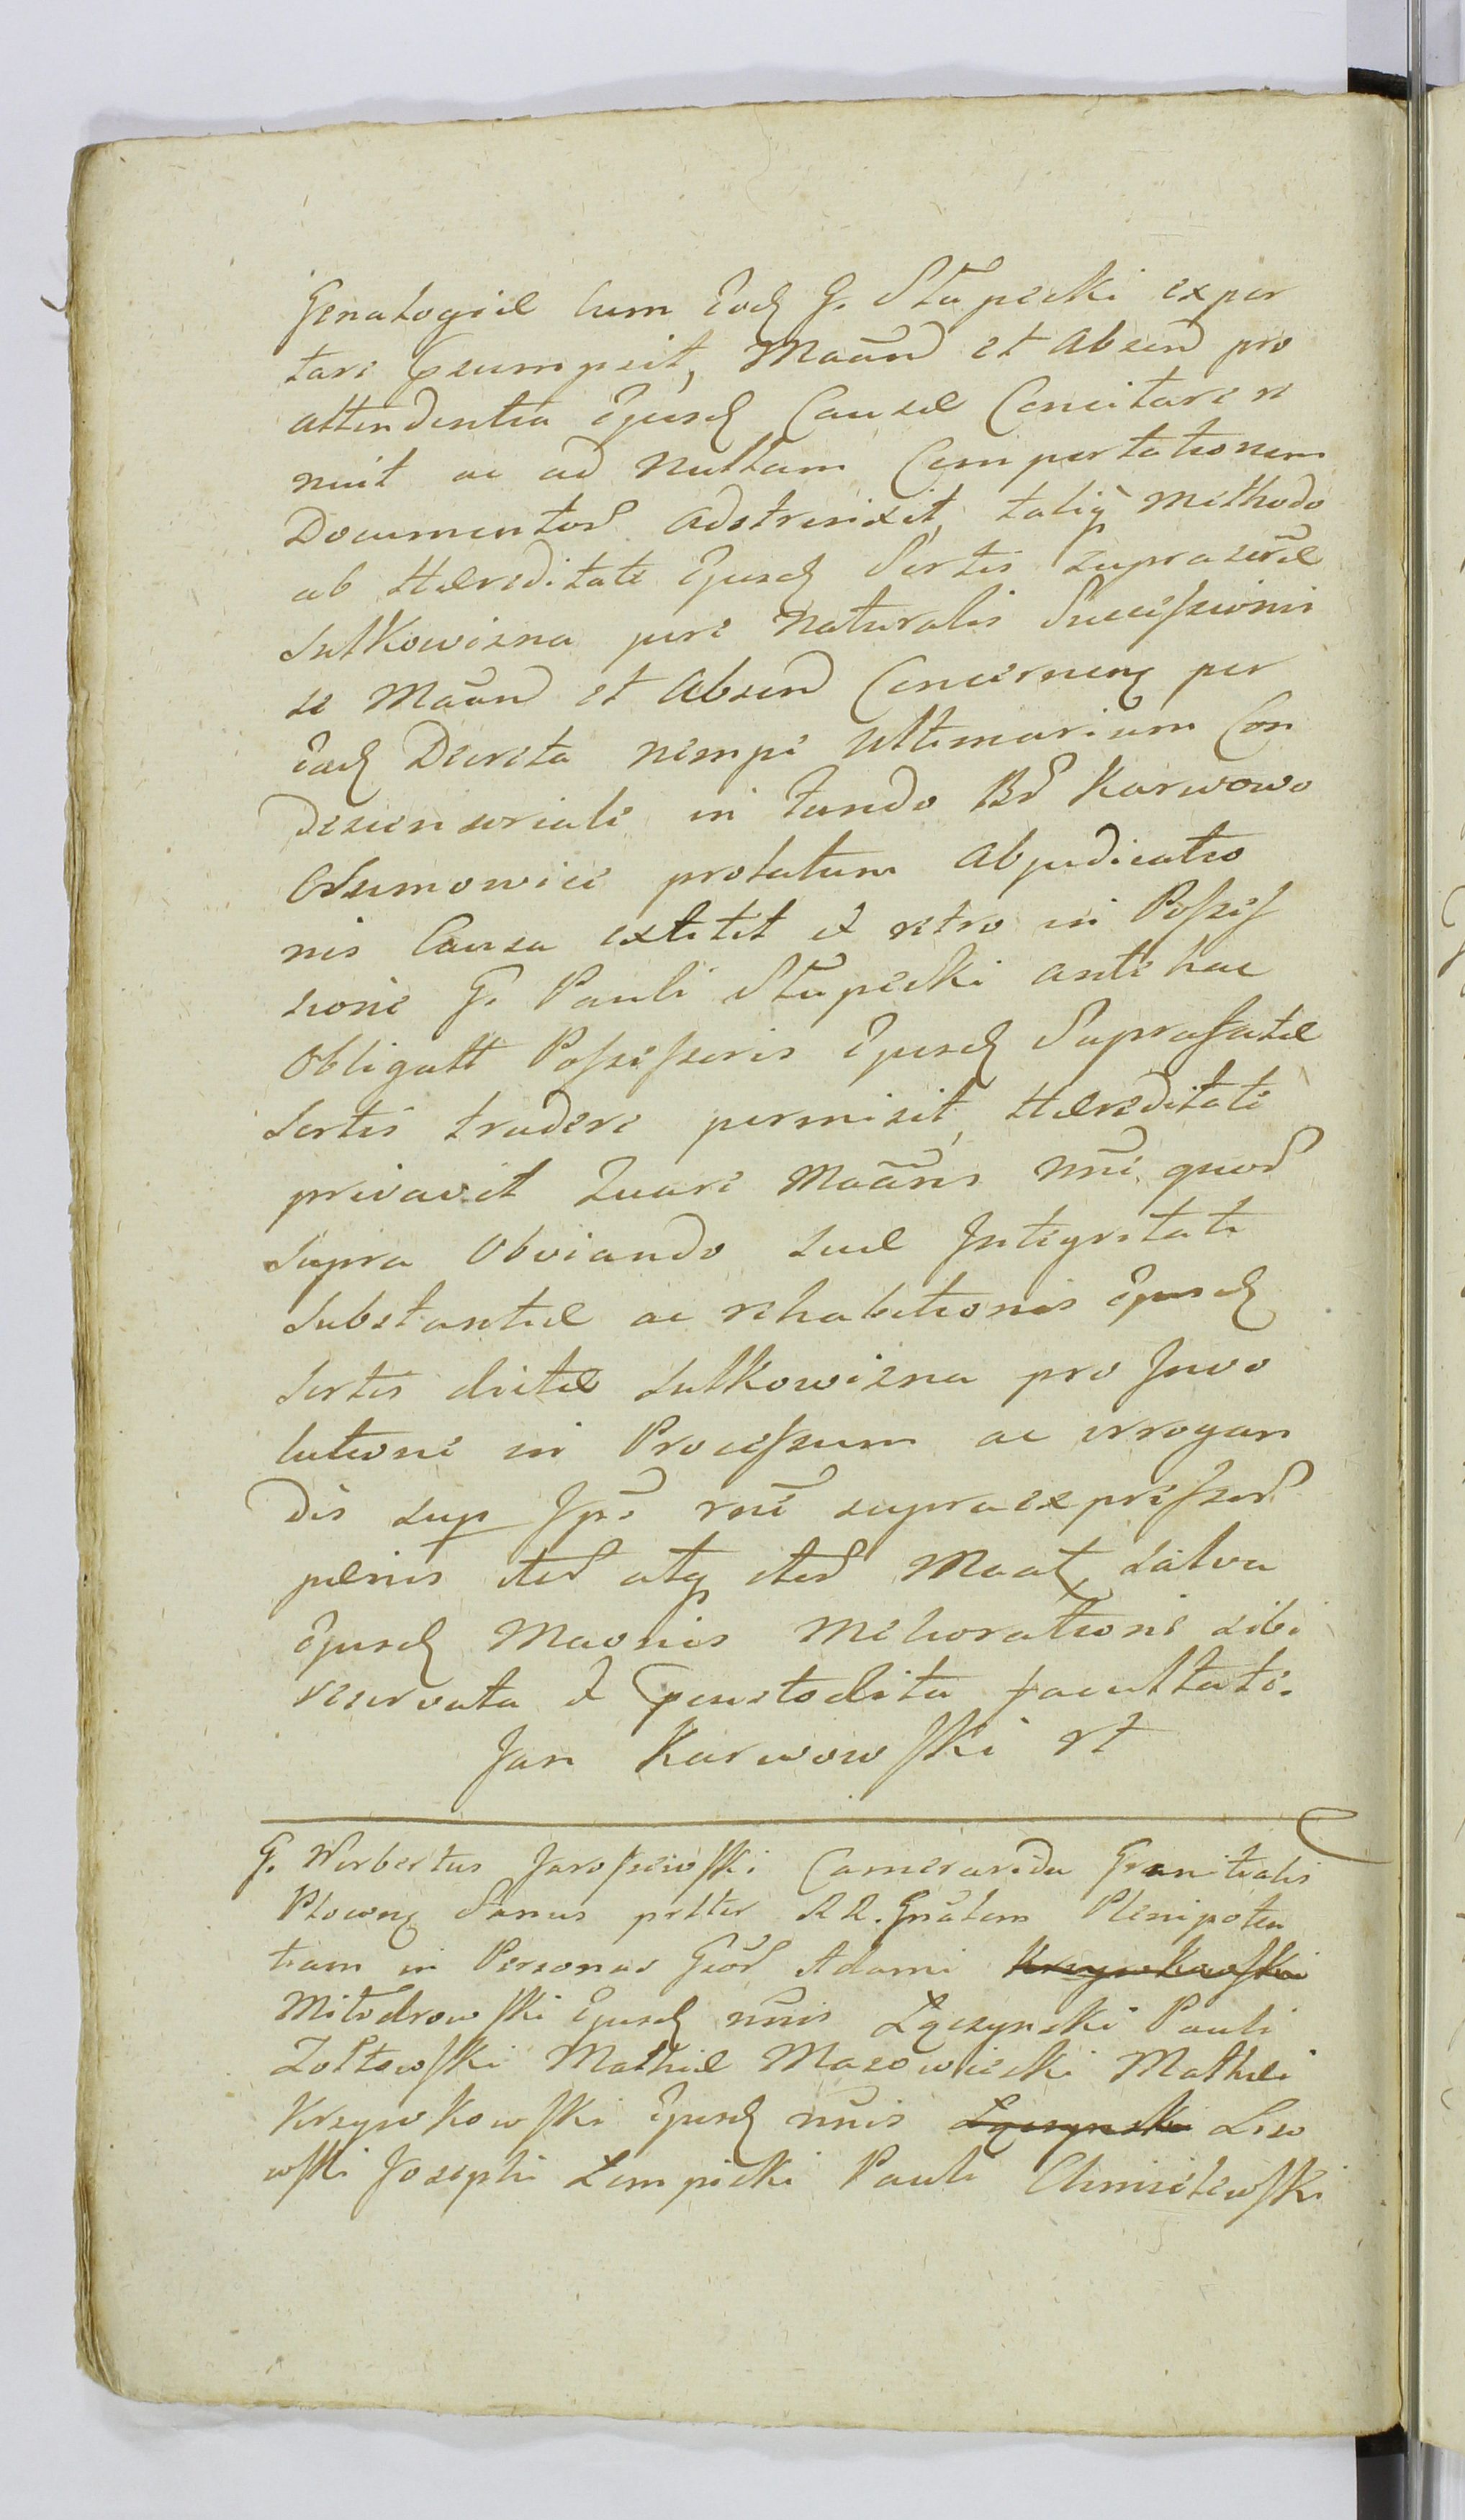 Genalogiæ cum Eodꝫ G. Słupecki expor
tare Psumpsit, Maãnd et Absend pro
attendentia Ejusdꝫ Causæ Concitare re
nuit ac ad nullam Comportationem
Documentor adstrinxit, taliq̃ Methodo
ab Hæreditate Ejusdꝫ Sortis supra sc̃ræ
Sutkowizna jure Naturalis Succeſsionis
se Maãnd et Absend Concerneñ per
Eadꝫ Decreta nempe Ultimarium Con
descensoriale in fundo Br̃ Karwowo
Orszmowice prolatum Abjudicatio
nis Causa extitit et retro in Poſseſ
sione G. Pauli Słupecki antehac
Obligatt Poſseſsoris Ejusdꝫ Suprafatæ
Sortis tradere permisit, Hæreditate
privavit Quare Maãns nr̃i quor
Supra Obviando suæ Integritati
Substantiæ ac rehabitionis Ejusdꝫ
Sortis dictæ Sutkowizna pro Invo
lutione in Proceſsum ac irrogan
dis sup Ips̃ rnẽ supraexpreſsor
pænis iter̃ atq̃ iter̃ Maat, salva
Ejusdꝫ Maonis Meliorationis sibi
reservata et Pcustodita facultate.
Jan Karwowſki rt
G. Norbertus Jaroſzewſki Camerarida Granitialis
Plocenꝫ Sanus pstter RR. Gñalem Plenipoten
tiam in Personas Gsõr Adami Krzywkowſki
Miłodrowſki Ejusdꝫ nñis Łączynski Pauli
Zołtowſki Mathiæ Mazowiecki Mathæi
Krzywkowſki Ejusdꝫ nñis Łączynski Liso
wſki Josephi Łempicki Pauli Chmielewſki